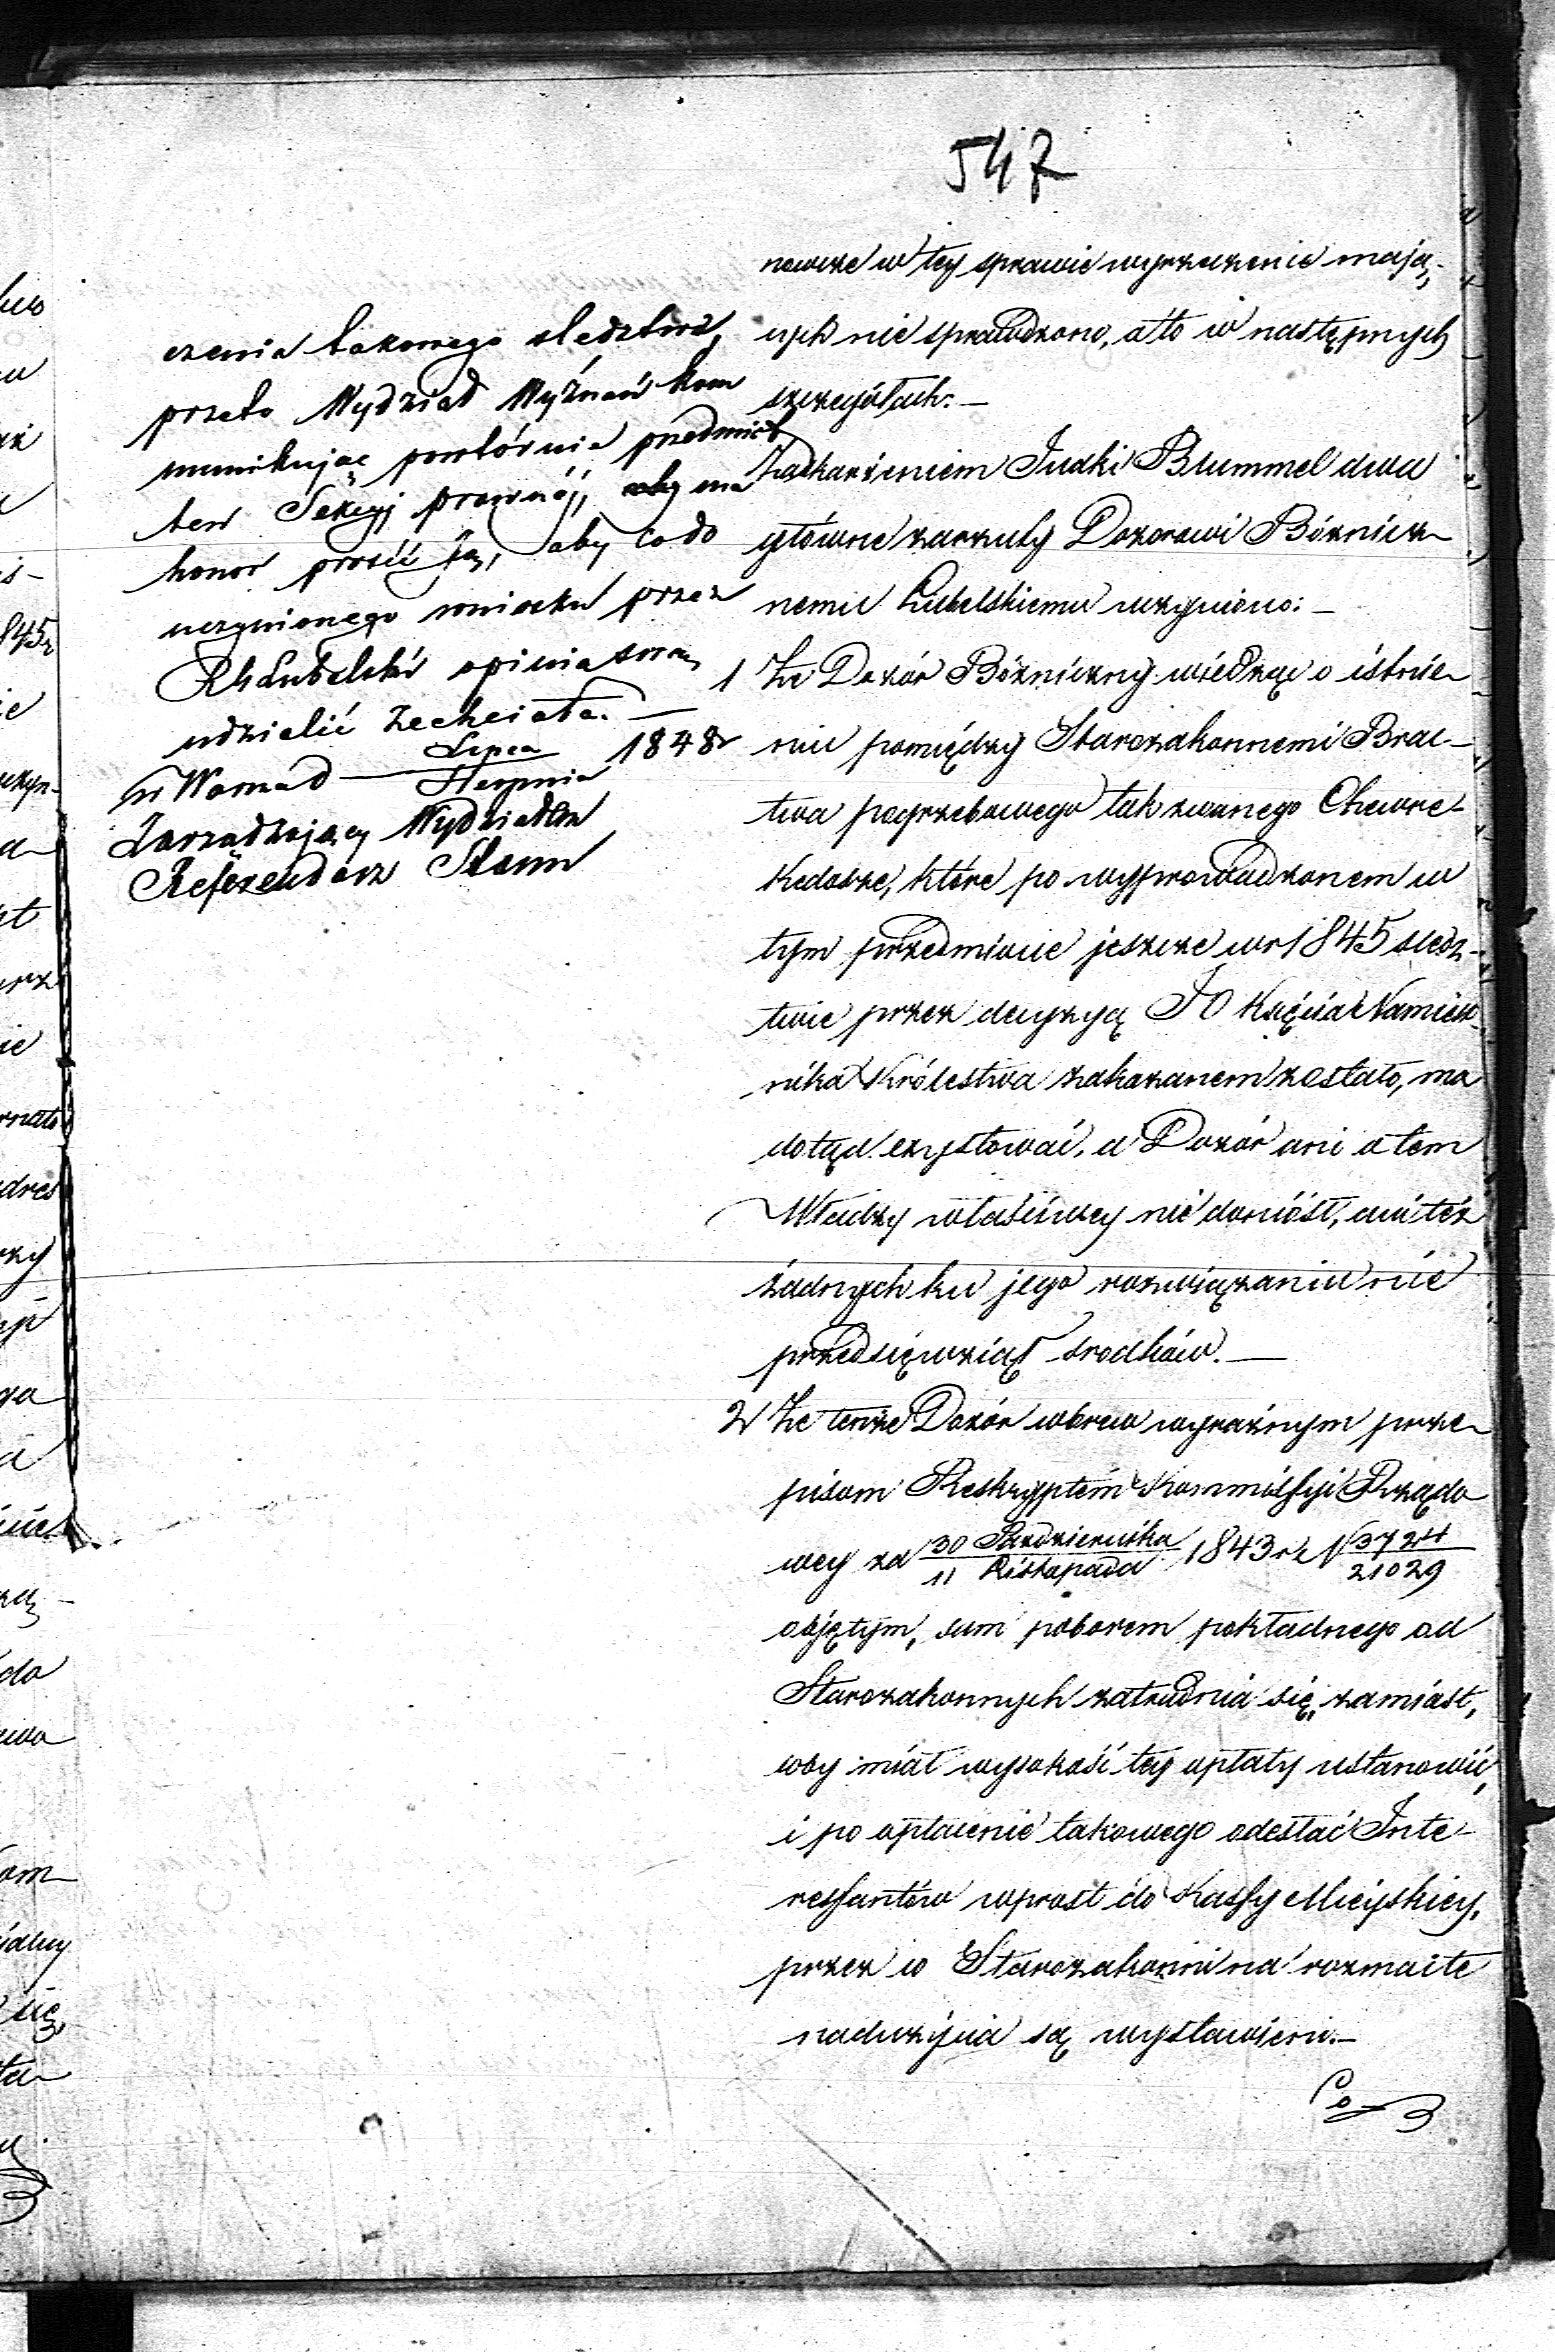 547
czenia takowego sledztwa,
przeto Wydział Wyznań kom
munikując powtórnie przedmiot
ten Sekcyj prawnéj, ma
honor prosić Ją, aby co do
uczynionego wniosku przez
RG Lubelski opinią swą
udzielić zechciała. —
w Warsz d — Lipca / Sierpnia 1848 r
Zarządzający Wydziałem
Referendarz Stanu
nowcze w tey sprawie wyrzeczenie mają-
cych nie sprawdzono, a to w następnych
szczegółach. —
Zaskarżeniem Judki Brummel dwa
główne zarzuty Dozorowi Bóżnicz-
nemu Lubelskiemu uczyniono: —
1 Że Dozór Bóżniczny wiedząc o istnie-
niu pomiędzy Starozakonnemi Brac-
twa pogrzebowego tak zwanego Chewre-
Kedosze, które po wyprowadzonem w
tym przedmiocie jeszcze w r 1845 śledz-
twie przez decyzyą J O Księcia Namiest-
nika Królestwa zakazanem zostało, ma
dotąd exystować, a Dozór ani o tem
Władzy właściwey nie doniósł, ani też
żadnych ku jego rozwiązaniu nie
przedsięwziął środków. —
2 Że tenże Dozór wbrew wyraźnym prze-
pisom Reskryptem Kommissyi Rządo
wey za 30 Października / 11 Listopada 1843 r N 3724 / 21029
objętym, sam poborem pokładnego od
Starozakonnych zatrudnia się, zamiast,
coby miał wysokość tey opłaty ustanowić,
i po opłacenie takowego odesłać Inte-
ressantów wprost do Kassy Mieyskiey,
przez co Starozakonni na rozmaite
nadużycia są wystawieni. —
Co